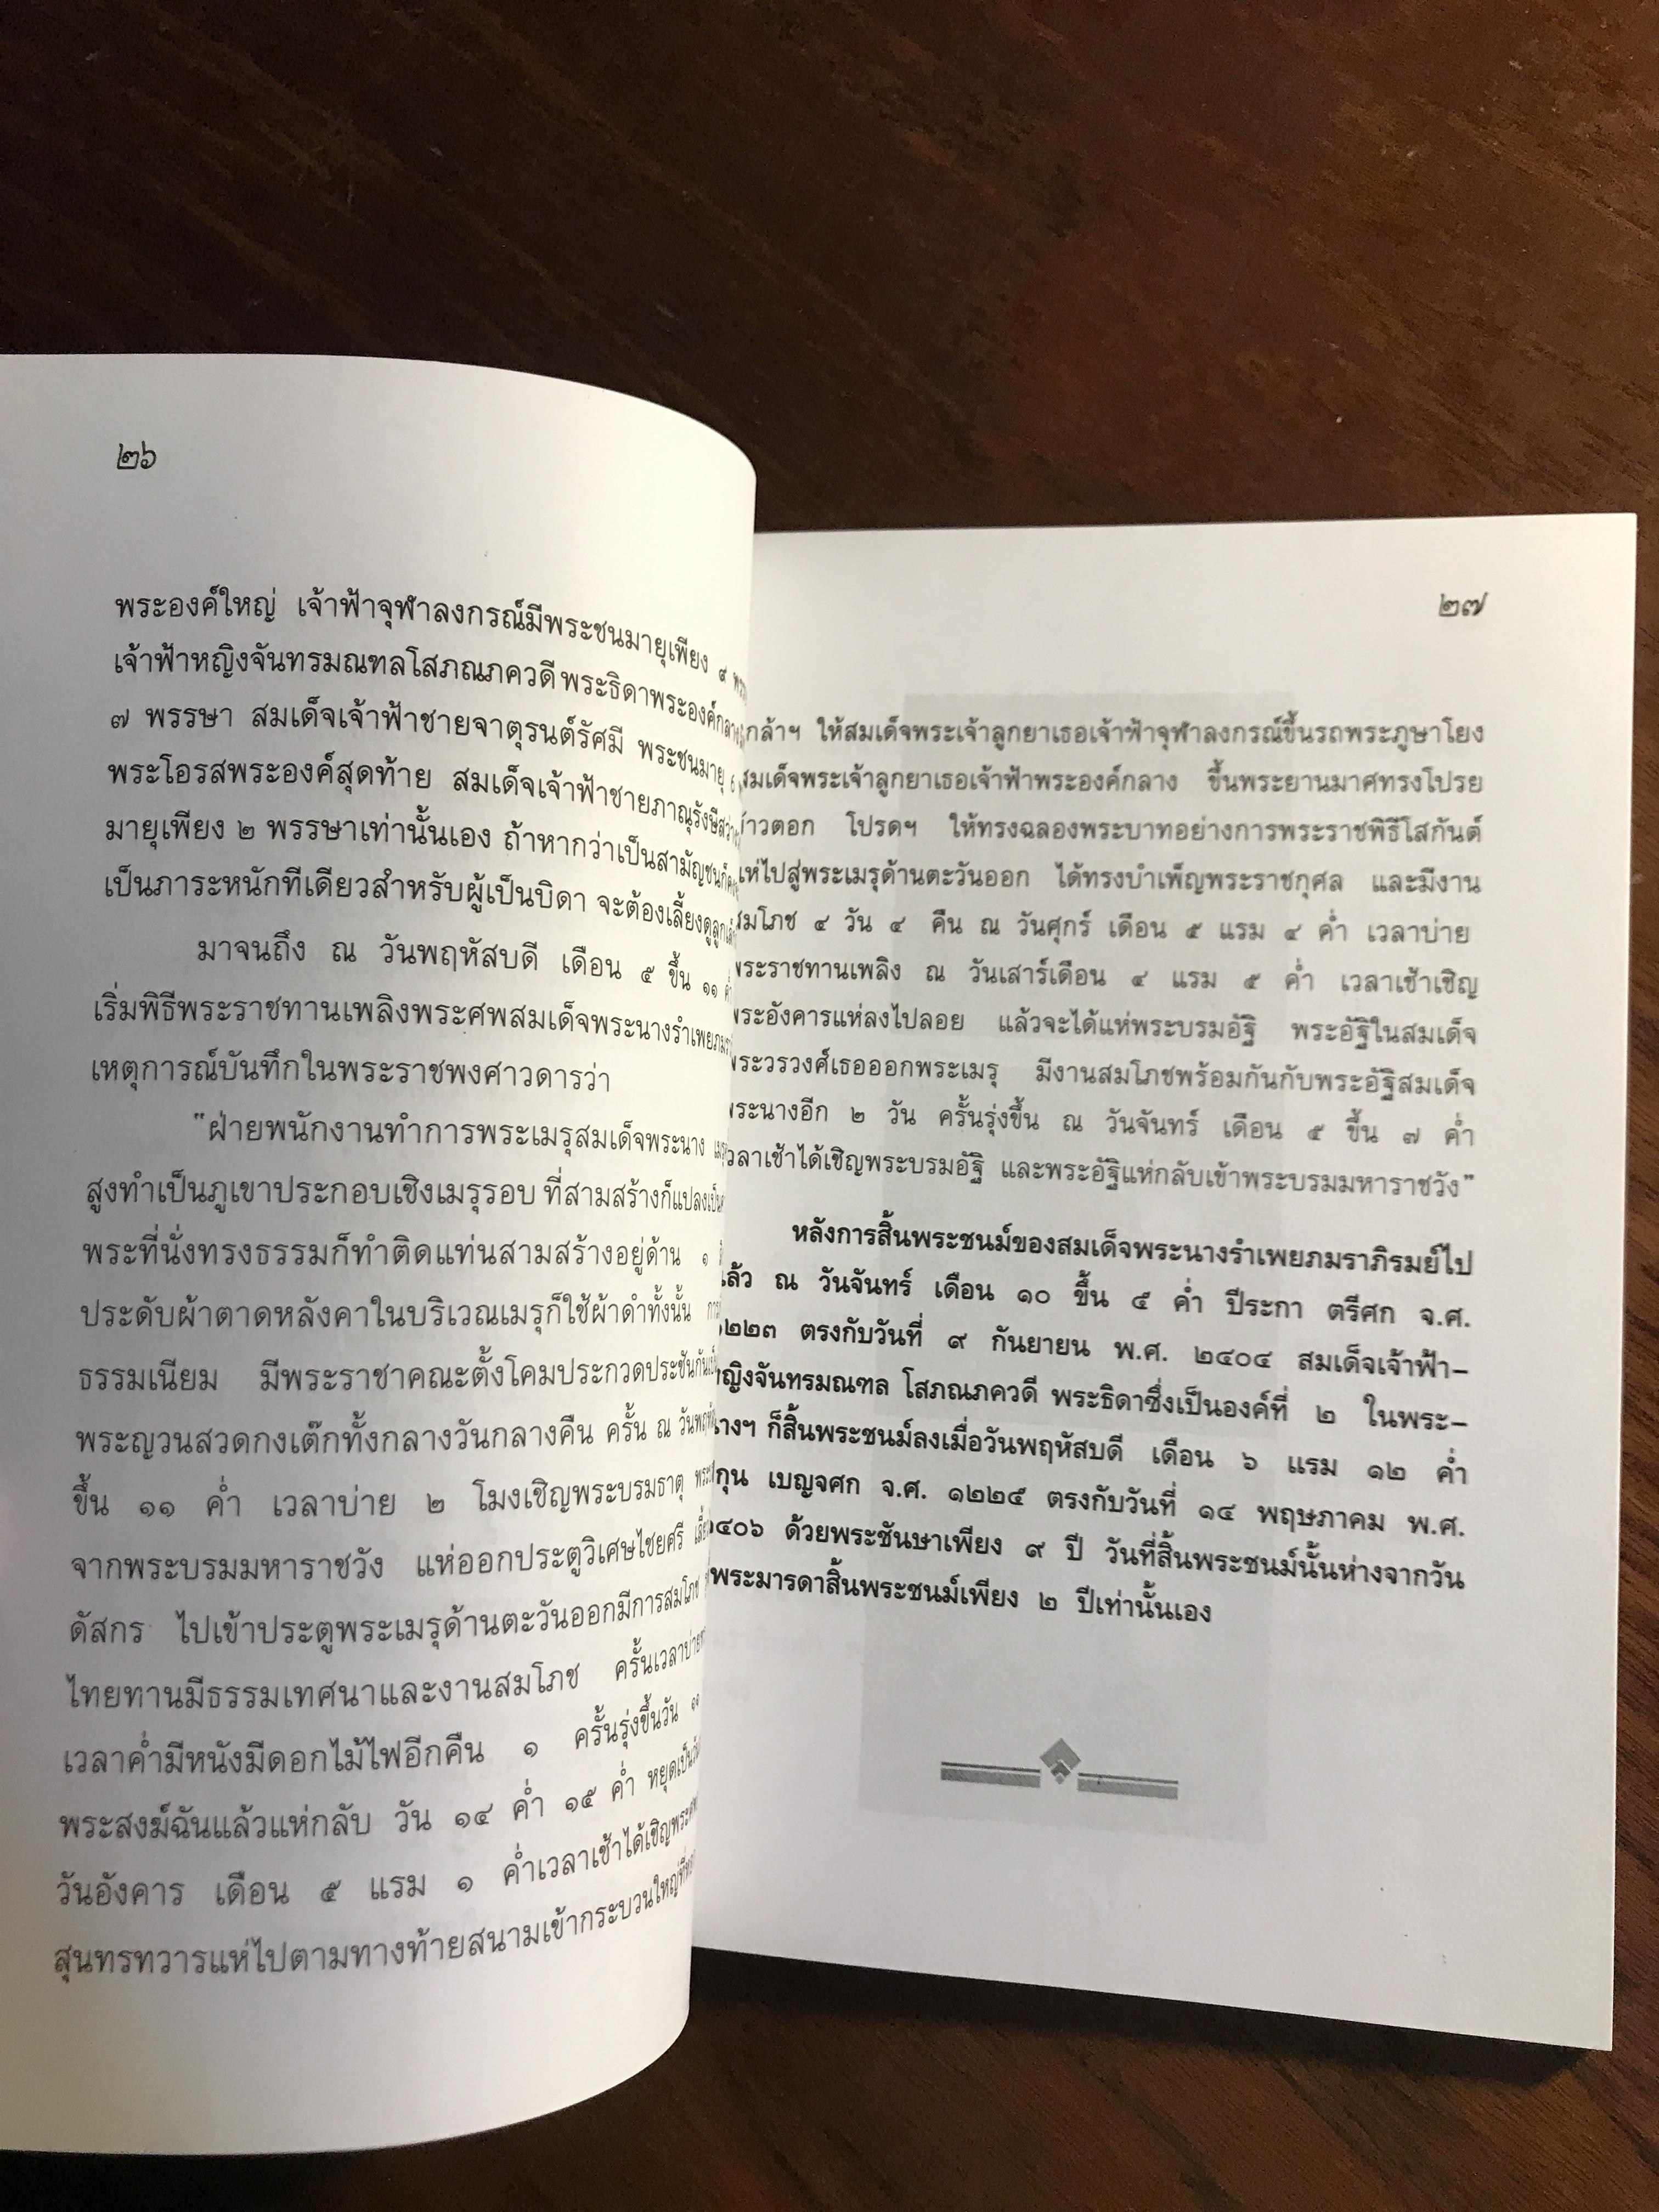 ๒๖
พระองค์ใหญ่ เจ้าฟ้าจุฬาลงกรณ์มีพระชนมายุเพียง ๙
เจ้าฟ้าหญิงจันทรมณฑลโสภณภควดี พระธิดาพระองค์กลาง
๗ พรรษา สมเด็จเจ้าฟ้าชายจาตุรนต์รัศมี พระชนมายุ
พระโอรสพระองค์สุดท้าย สมเด็จเจ้าฟ้าชายภาณุรังษีสว่าง
มายุเพียง ๒ พรรษาเท่านั้นเอง ถ้าหากว่าเป็นสามัญชนก็
เป็นภาระหนักทีเดียวสำหรับผู้เป็นบิดา จะต้องเลี้ยงดูลูก
มาจนถึง ณ วันพฤหัสบดี เดือน ๕ ขึ้น ๑๑ ค่ำ
เริ่มพิธีพระราชทานเพลิงพระศพสมเด็จพระนางรำเพยภมรา
เหตุการณ์บันทึกในพระราชพงศาวดารว่า
"ฝ่ายพนักงานทำการพระเมรุสมเด็จพระนาง
สูงทำเป็นภูเขาประกอบเชิงเมรุรอบ ที่สามสร้างก็แปลงเป็น
พระที่นั่งทรงธรรมก็ทำติดแท่นสามสร้างอยู่ด้าน ๑
ประดับผ้าตาดหลังคาในบริเวณเมรุก็ใช้ผ้าดำทั้งนั้น
ธรรมเนียม มีพระราชาคณะตั้งโคมประกวดประชันกัน
พระญวนสวดกงเต๊กทั้งกลางวันกลางคืน ครั้น ณ วัน
ขึ้น ๑๑ ค่ำ เวลาบ่าย ๒ โมงเชิญพระบรมธาตุ
จากพระบรมมหาราชวัง แห่ออกประตูวิเศษไชยศรี
ดัสกร ไปเข้าประตูพระเมรุด้านตะวันออกมีการสมโภช
ไทยทานมีธรรมเทศนาและงานสมโภช ครั้นเวลาบ่าย
เวลาค่ำมีหนังมีดอกไม้ไฟอีกคืน ๑ ครั้นรุ่งขึ้นวัน
พระสงฆ์ฉันแล้วแห่กลับ วัน ๑๔ ค่ำ ๑๕ ค่ำ หยุดเป็น
วันอังคาร เดือน ๕ แรม ๑ ค่ำเวลาเช้าได้เชิญพระ
สุนทรทวารแห่ไปตามทางท้ายสนามเข้ากระบวนใหญ่
๒๗
กล้าฯ ให้สมเด็จพระเจ้าลูกยาเธอเจ้าฟ้าจุฬาลงกรณ์ขึ้นรถพระภูษาโยง
สมเด็จพระเจ้าลูกยาเธอเจ้าฟ้าพระองค์กลาง ขึ้นพระยานมาศทรงโปรย
ข้าวตอก โปรดฯ ให้ทรงฉลองพระบาทอย่างการพระราชพิธีโสกันต์
แห่ไปสู่พระเมรุด้านตะวันออก ได้ทรงบำเพ็ญพระราชกุศล และมีงาน
สมโภช ๔ วัน ๔ คืน ณ วันศุกร์ เดือน ๕ แรม ๔ ค่ำ เวลาบ่าย
พระราชทานเพลิง ณ วันเสาร์เดือน ๔ แรม ๕ ค่ำ เวลาเช้าเชิญ
พระอังคารแห่ลงไปลอย แล้วจะได้แห่พระบรมอัฐิ พระอัฐิในสมเด็จ
พระวรวงศ์เธอออกพระเมรุ มีงานสมโภชพร้อมกันกับพระอัฐิสมเด็จ
พระนางอีก ๒ วัน ครั้นรุ่งขึ้น ณ วันจันทร์ เดือน ๕ ขึ้น ๗ ค่ำ
เวลาเช้าได้เชิญพระบรมอัฐิ และพระอัฐิแห่กลับเข้าพระบรมมหาราชวัง"
หลังการสิ้นพระชนม์ของสมเด็จพระนางรำเพยภมราภิรมย์ไป
แล้ว ณ วันจันทร์ เดือน ๑๐ ขึ้น ๕ ค่ำ ปีระกา ตรีศก จ.ศ.
๑๒๒๓ ตรงกับวันที่ ๙ กันยายน พ.ศ. ๒๔๐๔ สมเด็จเจ้าฟ้า-
หญิงจันทรมณฑล โสภณภควดี พระธิดาซึ่งเป็นองค์ที่ ๒ ในพระ-
นางฯ ก็สิ้นพระชนม์ลงเมื่อวันพฤหัสบดี เดือน ๖ แรม ๑๒ ค่ำ
กุน เบญจศก จ.ศ. ๑๒๒๕ ตรงกับวันที่ ๑๔ พฤษภาคม พ.ศ.
๒๔๐๖ ด้วยพระชันษาเพียง ๙ ปี วันที่สิ้นพระชนม์นั้นห่างจากวัน
พระมารดาสิ้นพระชนม์เพียง ๒ ปีเท่านั้นเอง